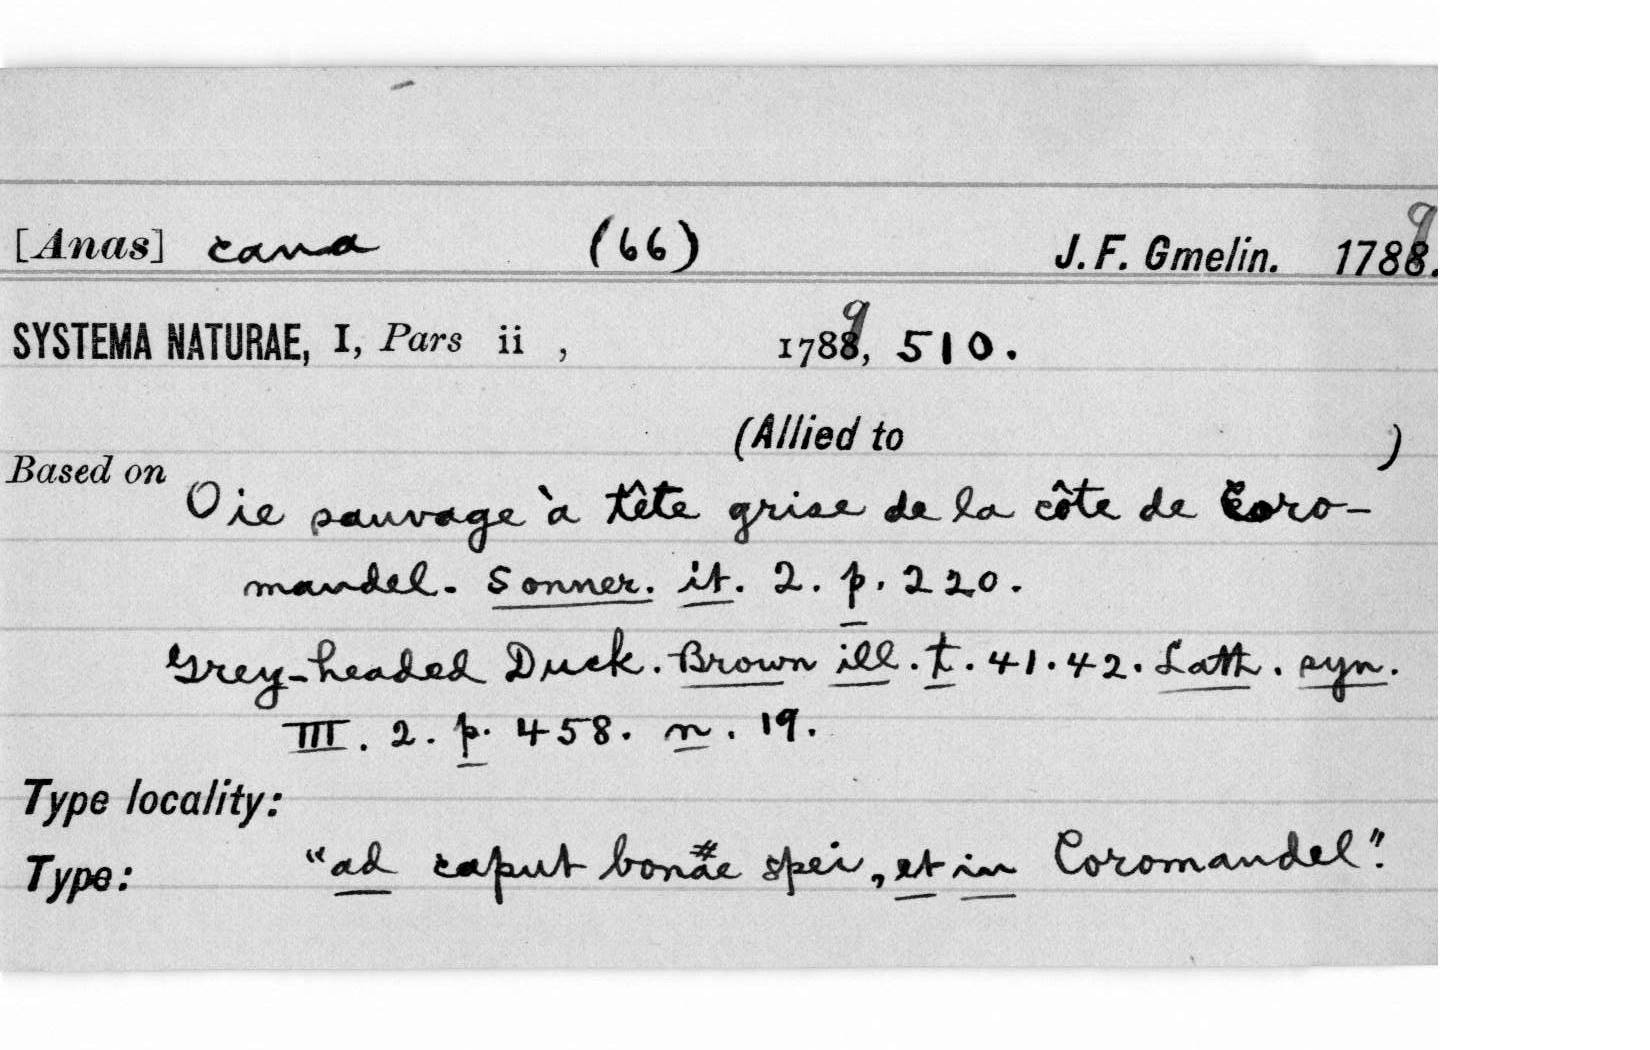 [Anas] cana (66) J. F. Gmelin. 1789.
SYSTEMA NATURAE, I, Pars ii , 1789, 510.
(Allied to )
Based on
Oie sauvage à tête grise de la côte de Coro-
mandel. Sonner. it. 2. p. 220.
Grey-headed Duck. Brown ill. t. 41. 42. Lath. syn.
III. 2. p. 458. n. 19.
Type locality:
Type: "ad caput bonae spei, et in Coromandel".